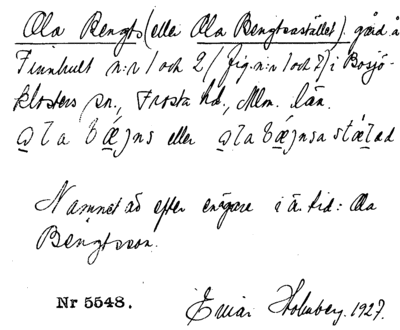 Ola Bengts (eller Ola Bengtsastället). gård å
Finnhult n:r 1 och 2 (fig. n:r 1 och 7) i Bosjö-
klosters sn., Frosta hd., Mlm. län.
ola bæŋns eller ola bæŋnsa stæləd
Namnet är efter en ägare i ä. tid: Ola
Bengtsson.
Nr 5548. Einar Holmberg. 1927.